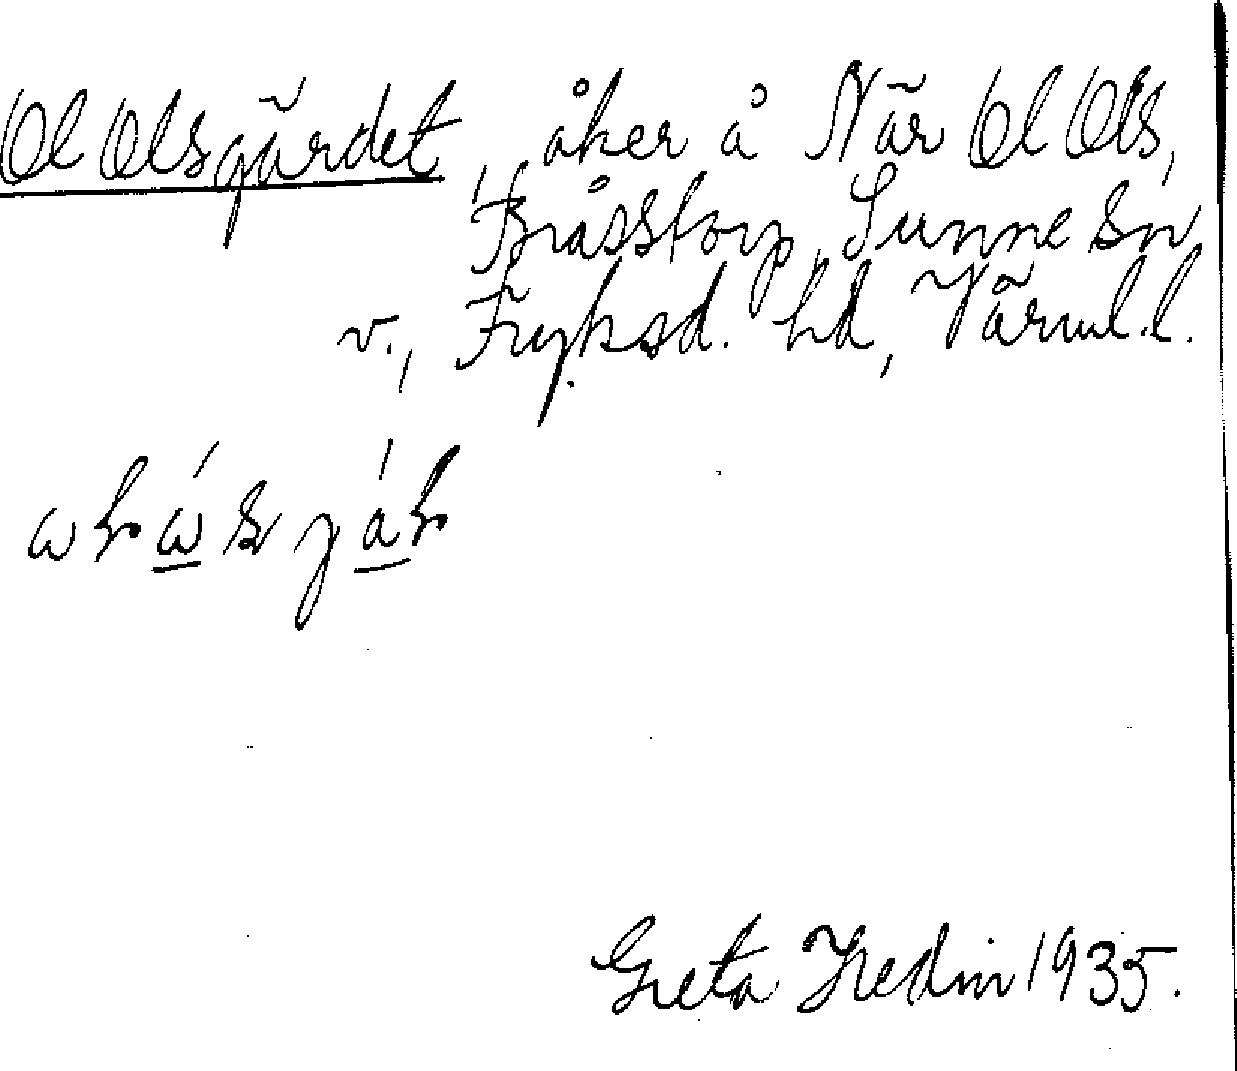 Ol Olsgärdet, åker å När Ol Ols,
Bråstorp, Sunne sn,
v., Fryksd. hd, Värml. l.
Greta Hedin 1935.